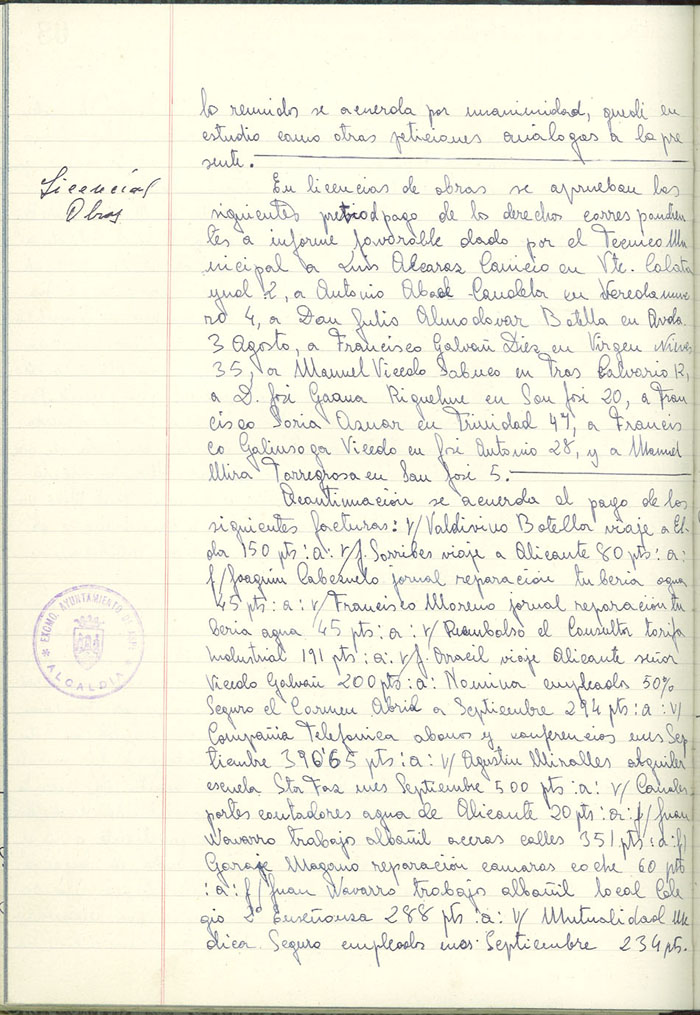 lo reunidos se acuerda por unanimidad, quede en
estudio como otras peticiones análogas a la pre
sente.
Licencias
Obras
En licencias de obras se aprueban las
siguientes pago de los derechos correspondien
tes a informe favorable dado por el Tecnico Mu
nicipal a Luis Alcaraz en Vte. Calata
yud 2, a Antonio Abad Candela en Vereda nume
ro 4, a Don Julio Almodovar Botella en Avda.
3 Agosto, a Francisco Galvañ Diez en Virgen Nieves
35, a Manuel Vicedo Sabuco en Tras Calvario 12,
a D. José Gaona Riquelme en San José 20, a Fran
cisco Soria Aznar en Trinidad 47, a Francis
co Galinsoga Vicedo en José Antonio 28, y a Manuel
Mira Torregrosa en San José 5.
Acontinuación se acuerda el pago de las
siguientes facturas: v/ Valdivino Botella viaje a El-
da 150 pts: a: v/ J. Sorribes viaje a Alicante 80 pts: a:
f/ Joaquin Cabezuelo jornal reparación tuberia agua
45 pts: a: v/ Francisco Moreno jornal reparación tu
beria agua 45 pts: a: v/ Reembolso el Consultor tarifa
Industrial 191 pts: a: v/ J. Arracil viaje Alicante señor
Vicedo Galvañ 200 pts: a: Nomina empleados 50%
Seguro el Carmen Abril a Septiembre 294 pts: a: v/
Compañia Telefonica abonos y conferencias mes Sep
tiembre 390'65 pts: a: v/ Agustin Miralles alquiler
escuela Sta Faz mes Septiembre 500 pts: a: v/ Canales
portes contadores agua de Alicante 20 pts: a: f/ Juan
Navarro trabajo albañil aceras calles 351 pts: a: f/
Garaje Magano reparación camaras coche 60 pts
: a: f/ Juan Navarro trabajo albañil local Cole
gio 2ª Enseñanza 288 pts: a: v/ Mutualidad Me
dica Seguro empleados mes Septiembre 234 pts.
EXCMO. AYUNTAMIENTO DE
ALCALDIA